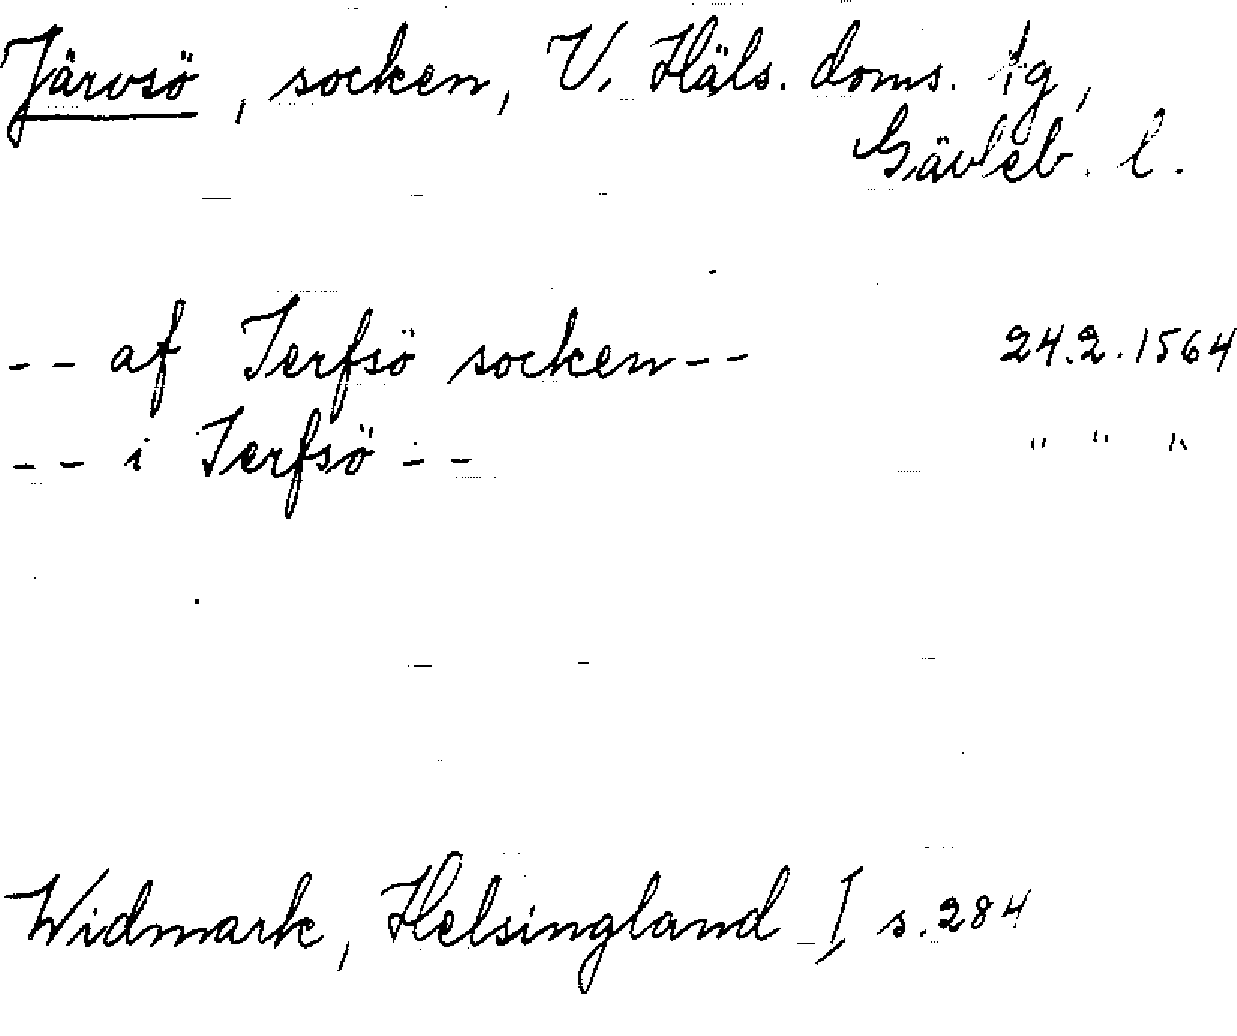 Järvsö, socken, V. Häls. doms. tg,
Gävleb. l.
-- af Jerfsö socken -- 24.2.1564
-- i Jerfsö -- " " "
Widmark, Helsingland I s. 284